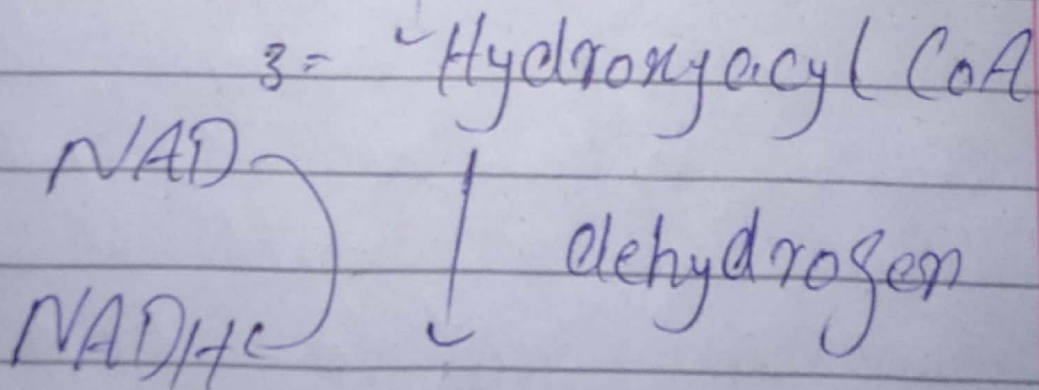 3= Hydroxyacyl CoA
NAD
dehydrogen
NADH